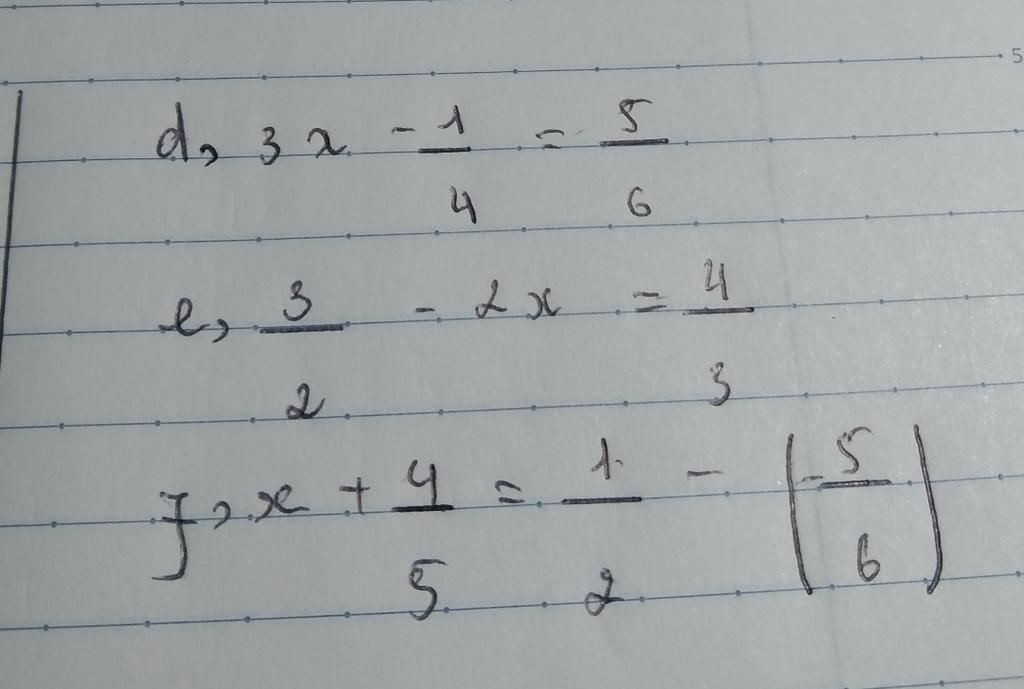 5
d, 3x - 1/4 = 5/6
e, 3/2 - 2x = 4/3
f, x + 4/5 = 1/2 - (-5/6)